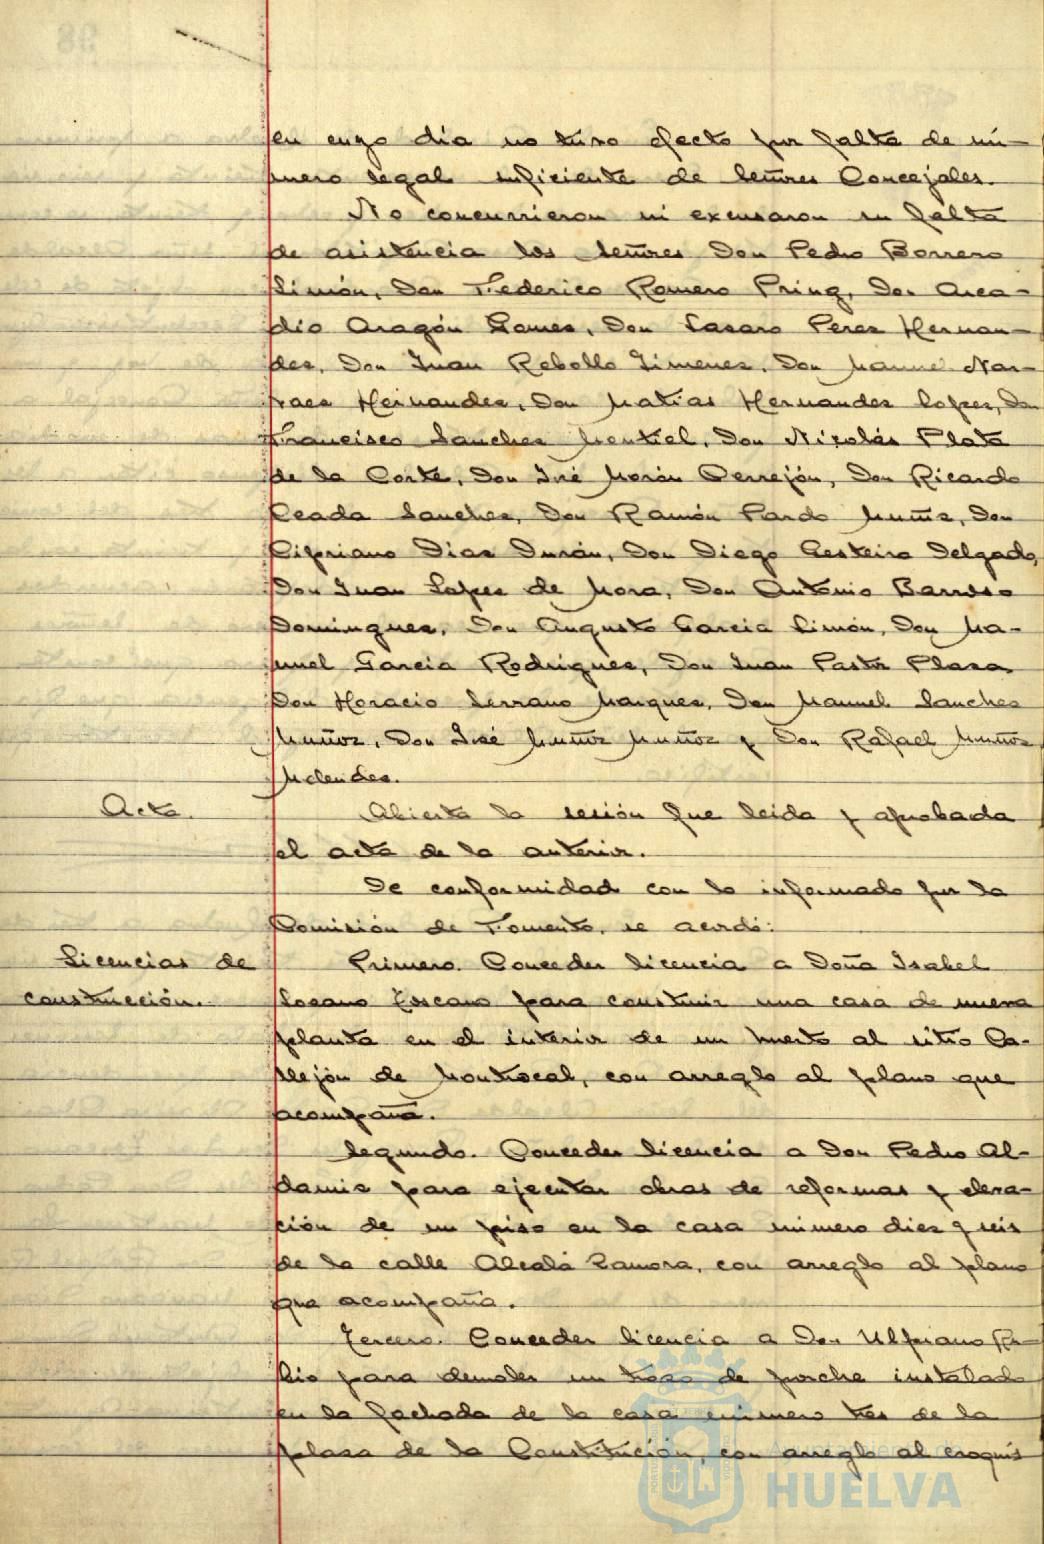 en cuyo día no tuvo efecto por falta de nú-
mero legal suficiente de señores Concejales.
No concurrieron ni excusaron su falta
de asistencia los señores Don Pedro Borrero
Limón, Don Federico Romero Pring, Don Arca-
dio Aragón Gomes, Don Lasaro Peres Hernan-
des, Don Juan Rebollo Jimenes, Don Manuel Nar-
vaes Hernandes, Don Matías Hernandes Lopes, Don
Francisco Sanches Montiel, Don Nicolás Plata
de la Corte, Don José Morón Perrejón, Don Ricardo
Ceada Sanches, Don Ramón Pardo Muñis, Don
Cipriano Dias Durán, Don Diego Gesteira Delgado,
Don Juan Lopes de Mora, Don Antonio Barroso
Domingues, Don Augusto Garcia Limón, Don Ma-
nuel Garcia Rodrigues, Don Juan Pastor Plasa
Don Horacio Serrano Marques, Don Manuel Sanches
Muños, Don José Muños Muños y Don Rafael Muños
Melendes.
Acta.
Abierta la sesión fue leida y aprobada
el acta de la anterior.
De conformidad con lo informado por la
Comisión de Fomento, se acordó:
Licencias de
construcción.
Primero. Conceder licencia a Doña Isabel
Losano Toscano para construir una casa de nueva
planta en el interior de un huerto al sitio Ca-
llejón de Montrocal, con arreglo al plano que
acompaña.
Segundo. Conceder licencia a Don Pedro Al-
damis para ejecutar obras de reformas y eleva-
ción de un piso en la casa número dies y seis
de la calle Alcalá Zamora, con arreglo al plano
que acompaña.
Tercero. Conceder licencia a Don Ulpiano Ru-
bio para demoler un troso de porche instalado
en la fachada de la casa número tres de la
plasa de la Constitución, con arreglo al croquis
Ayuntamiento de
HUELVA